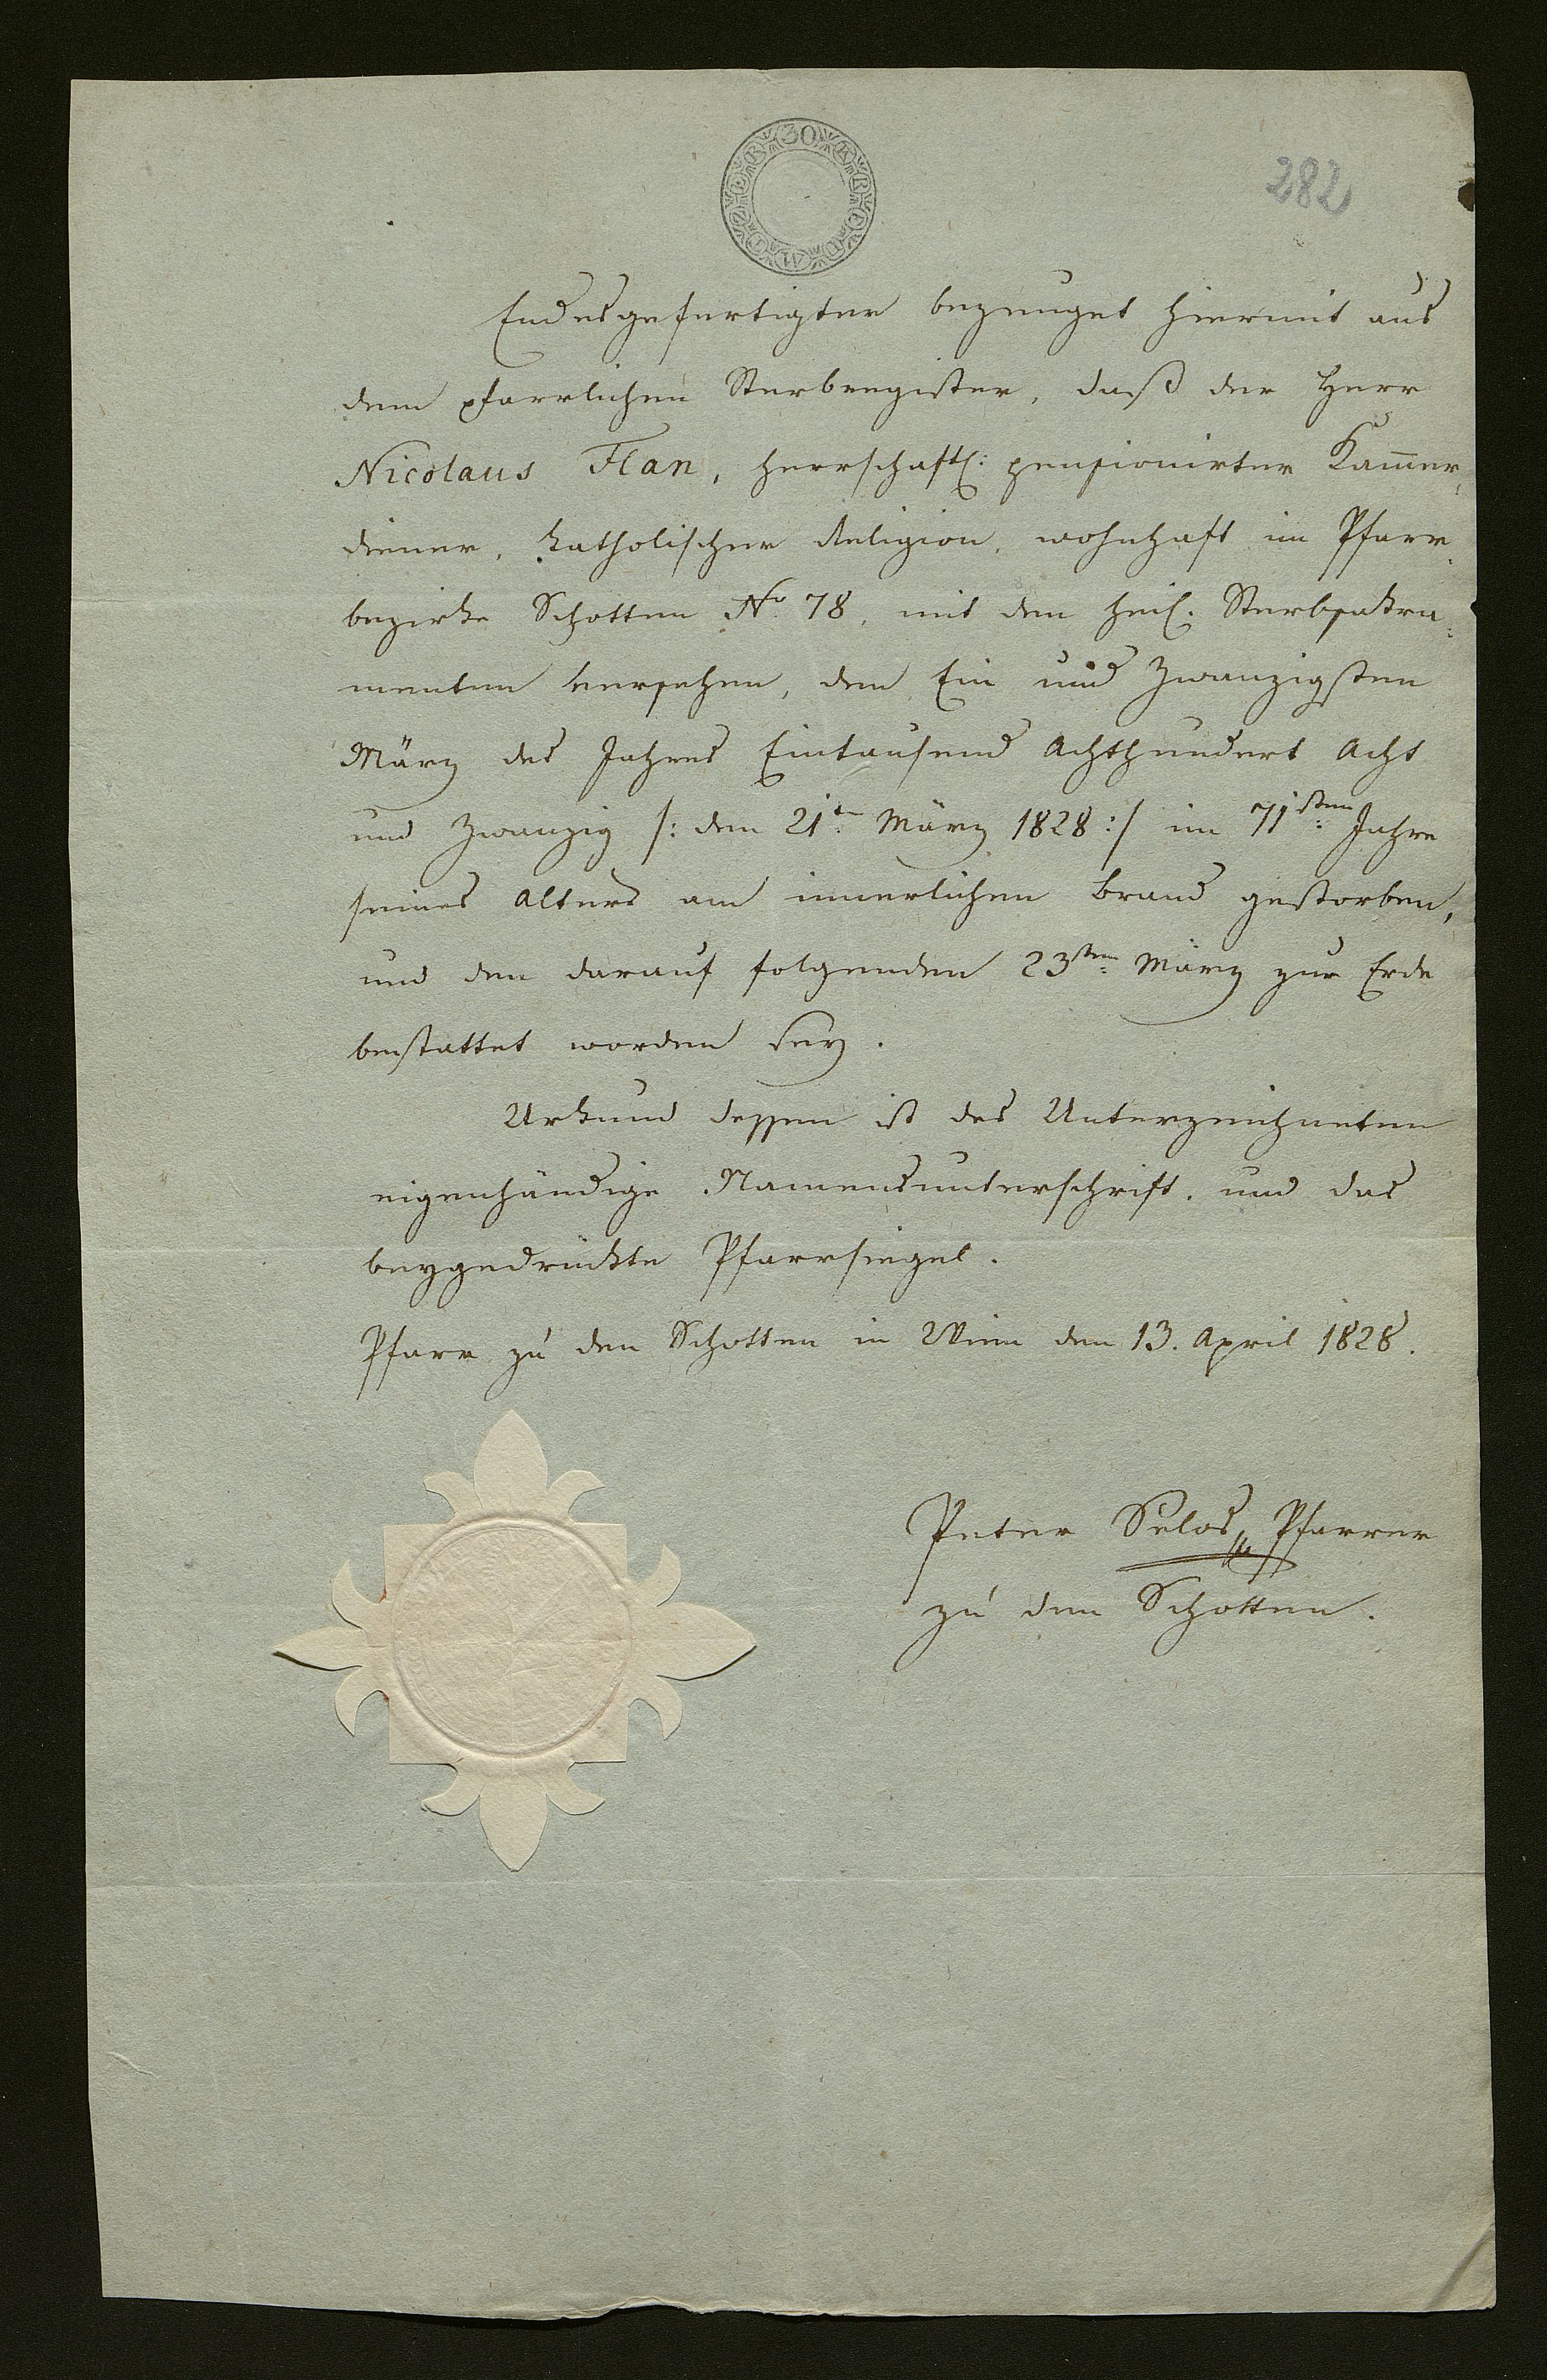 30 KREUTZER W
282
Endesgefertigter bezeuget hiermit aus
dem pfarrlichen Sterbregister, daß der Herr
Nicolaus Flan, herrschaftl: pensionirter Kam̅er,
diener, katholischer Religion, wohnhaft im Pfarr,
bezirke Schotten No. 78, mit den heil. Sterbsakra,
menten versehen, den Ein und Zwanzigsten
März des Jahres Eintausend Achthundert Acht
und Zwanzig /: den 21ten März 1828 :/ im 71sten Jahre
seines Alters am innerlichen Brand gestorben,
und den darauf folgenden 23sten März zur Erde
bestattet worden sey.
Urkund dessen ist des Unterzeichneten
eigenhändige Namensunterschrift, und das
beygedrückte Pfarrsiegel.
Pfarr zu den Schotten in Wien den 13. April 1828.
Peter Pfarrer
zu den Schotten.